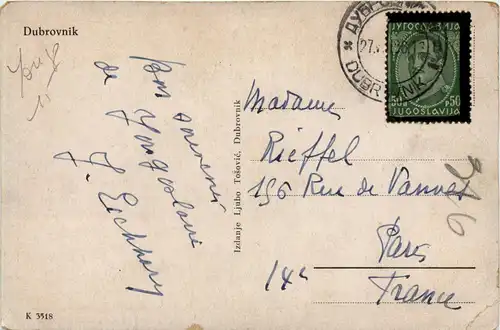 Dubrovnik
Bon souvenir
de Yougoslavie
J. Eichhorn
Izdanje Ljubo Tošović, Dubrovnik
ДУБРОВНИК
27.
DUBROVNIK
ЈУГОСЛАВИЈА
50 p 50
JUGOSLAVIJA
Madame
Rieffel
196 Rue de Vanves
Paris
14e
France
K 3518